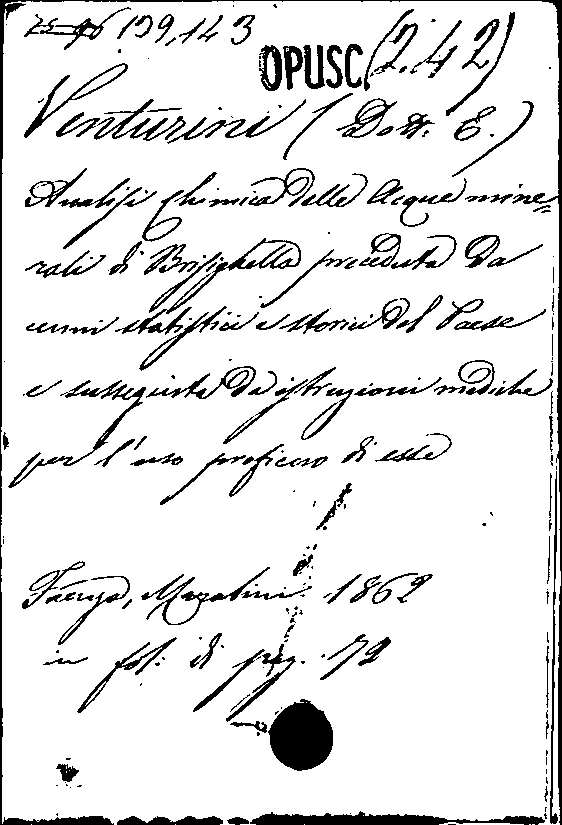 139,143
OPUSC. (2.42)
Venturini (Dott. E.)
Analisi Chimica delle Acque mine=
rali di Brisighella preceduta da
cenni statistici e storici del Paese
e susseguita da istruzioni mediche
per l'uso proficuo di esse
Faenza, Marabini 1862
in fol: di pag. 72